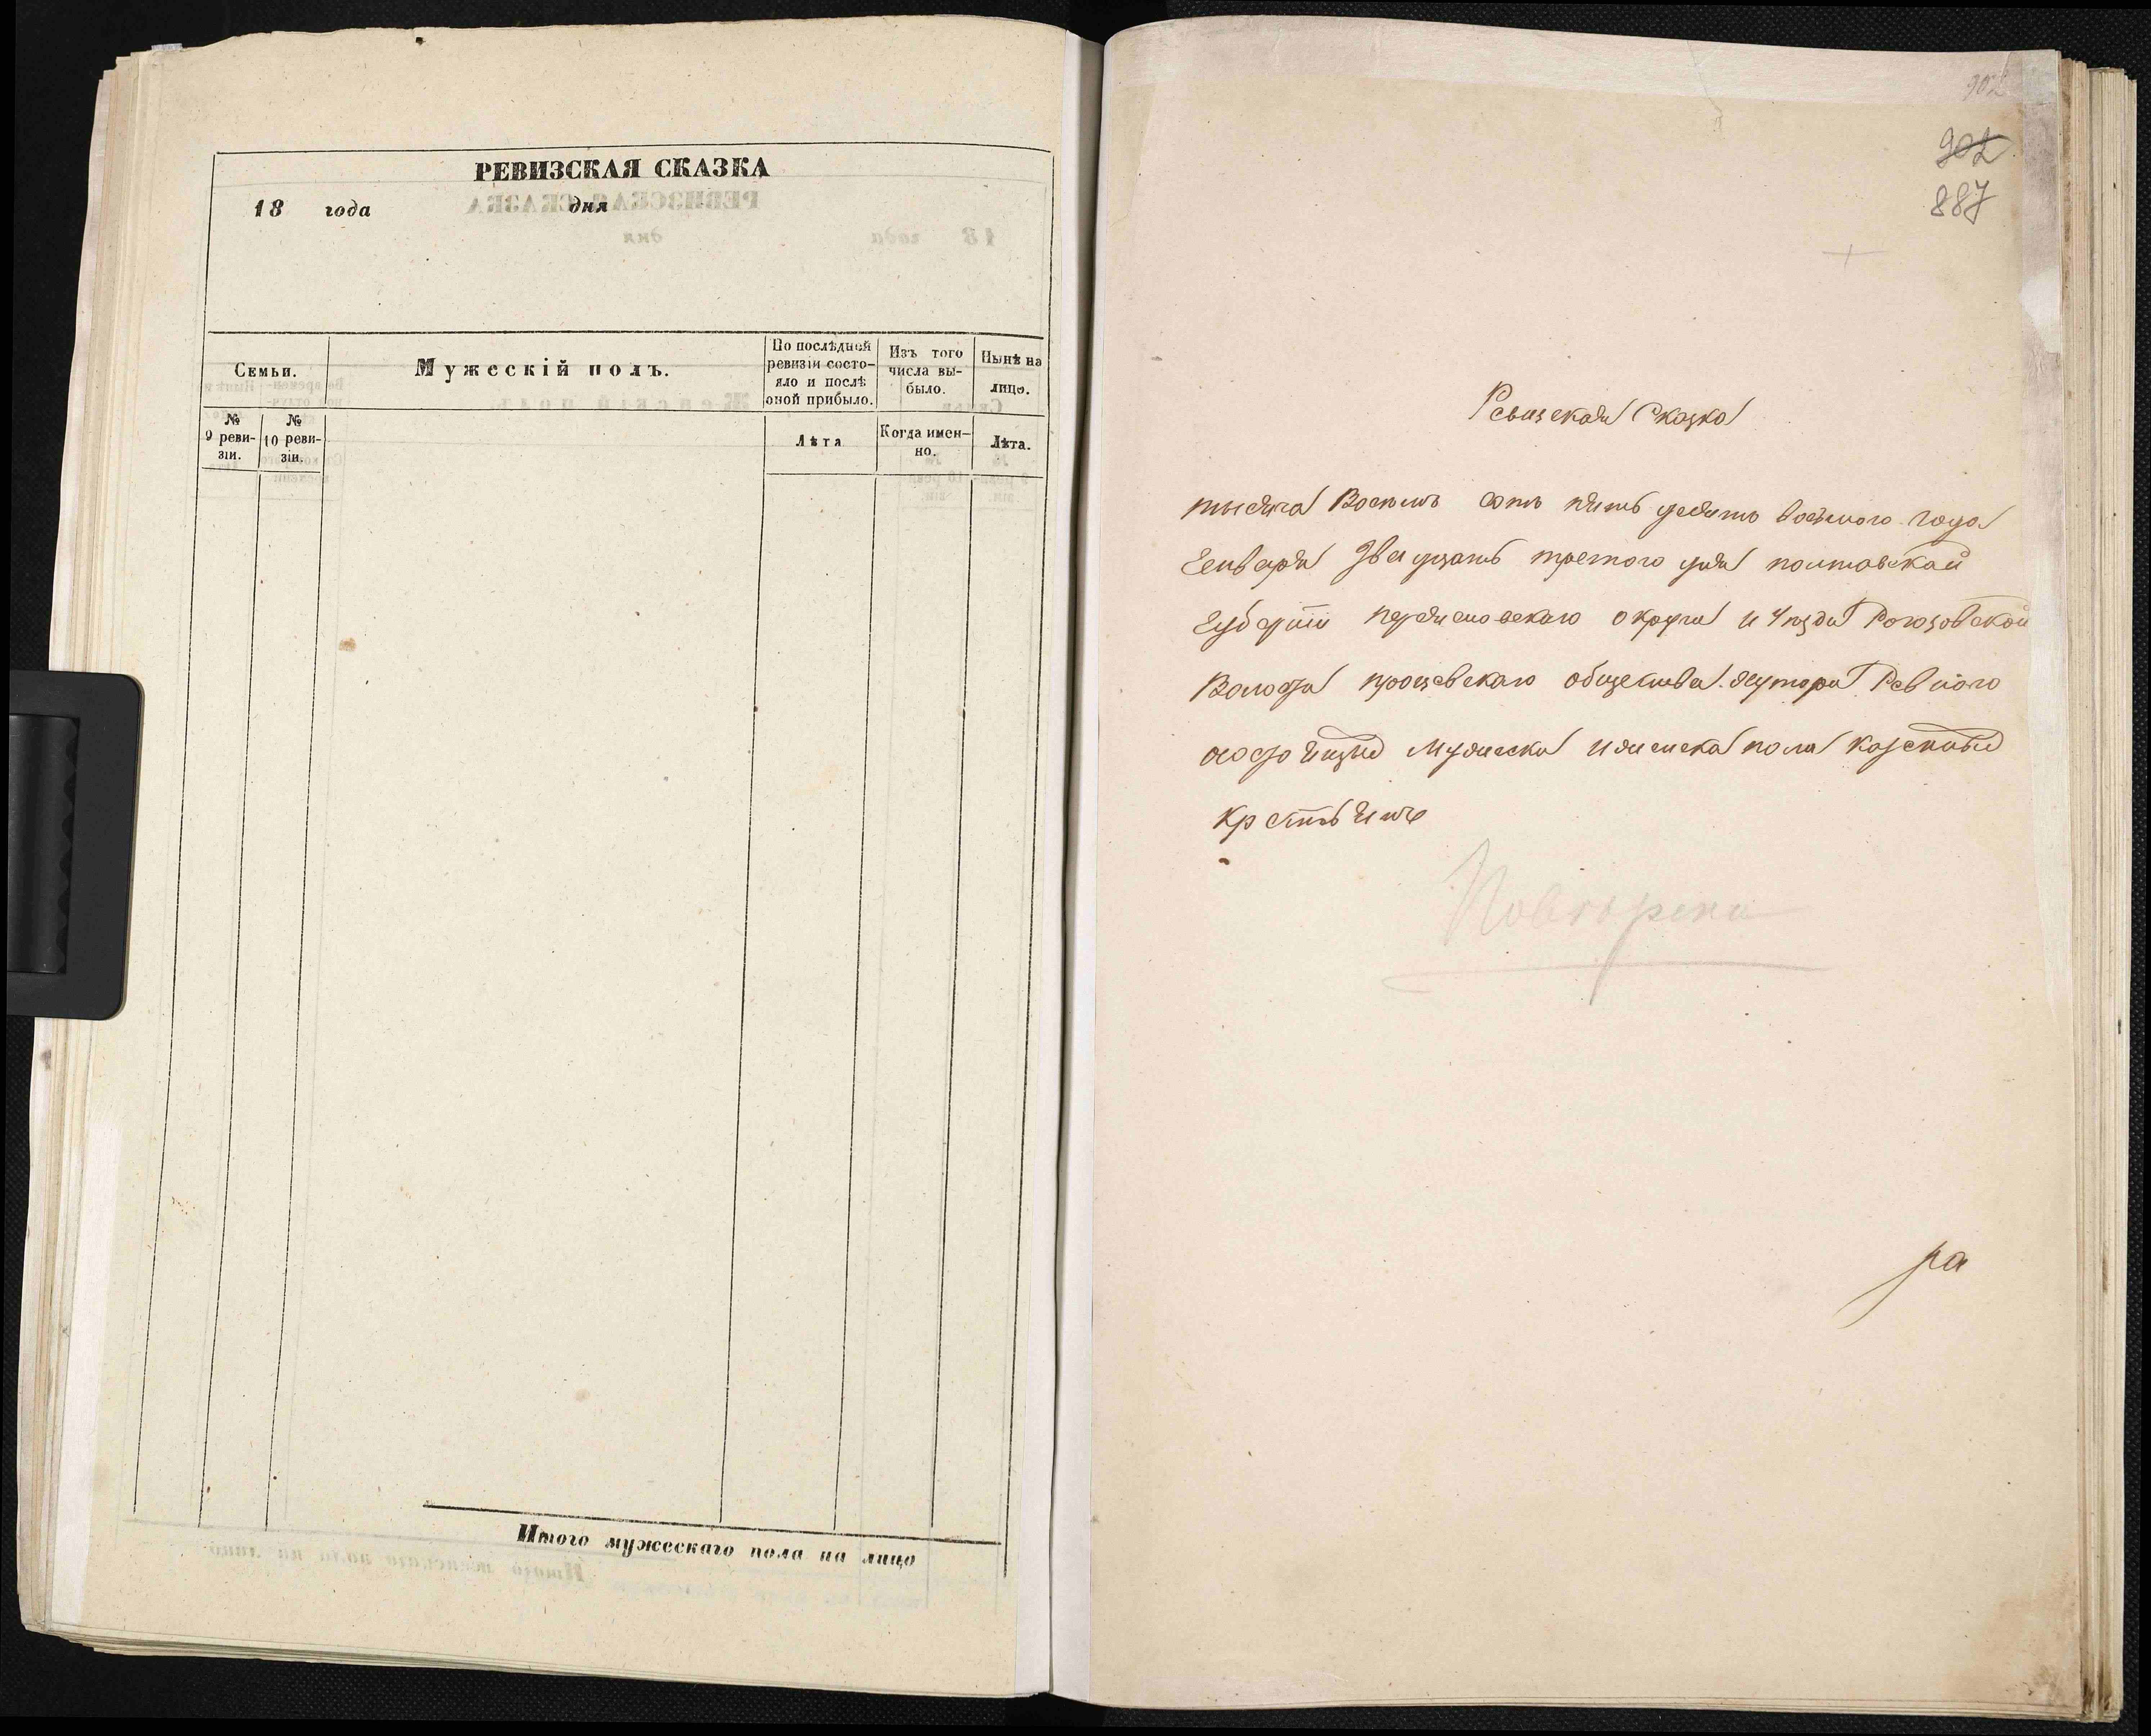 РЕВИЗСКАЯ СКАЗКА
18 года дня
Семьи.
Мужескій полъ.
По послѣдней ревизіи состояло и послѣ оной прибыло.
Изъ того числа выбыло.
Нынѣ на лицо.
№ 9 ревизіи.
№ 10 ревизіи.
Лѣта
Когда именно.
Лѣта.
Итого мужескаго пола на лицо
902
902
887
Ревизская Сказка
тысяча Восемь сотъ пять десять восьмого года
Генваря двадцать третого дня полтавской
Губерніи переясловскаго округа и уезда Рогозовской
Волости процевскаго общества хутора Ревного
состоящие Мужеска и женска пола казеные
крестьяне
Повторена
ра